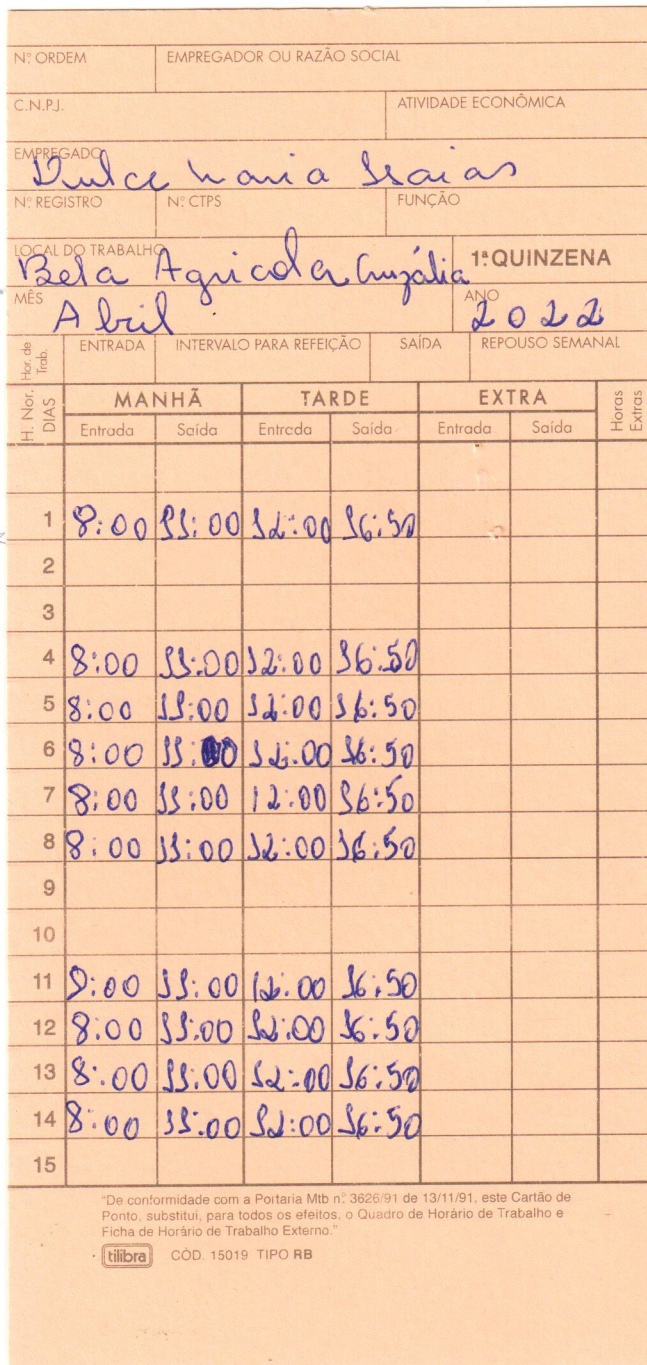 Nº ORDEM EMPREGADOR OU RAZÃO SOCIAL
C.N.P.J. ATIVIDADE ECONÔMICA
EMPREGADO
Dulce Maria Isaias
Nº REGISTRO Nº CTPS FUNÇÃO
LOCAL DO TRABALHO 1ª QUINZENA
Bela Agricola Cruzália
MÊS ANO
Abril 2022
Hor. de Trab. ENTRADA INTERVALO PARA REFEIÇÃO SAÍDA REPOUSO SEMANAL
H. Nor. DIAS MANHÃ TARDE EXTRA Horas Extras
Entrada Saída Entrada Saída Entrada Saída
1 8:00 11:00 12:00 16:50
2
3
4 8:00 11:00 12:00 16:50
5 8:00 11:00 12:00 16:50
6 8:00 11:00 12:00 16:50
7 8:00 11:00 12:00 16:50
8 8:00 11:00 12:00 16:50
9
10
11 8:00 11:00 12:00 16:50
12 8:00 11:00 12:00 16:50
13 8:00 11:00 12:00 16:50
14 8:00 11:00 12:00 16:50
15
"De conformidade com a Portaria Mtb nº 3626/91 de 13/11/91, este Cartão de
Ponto, substitui, para todos os efeitos, o Quadro de Horário de Trabalho e
Ficha de Horário de Trabalho Externo."
tilibra CÓD. 15019 TIPO RB